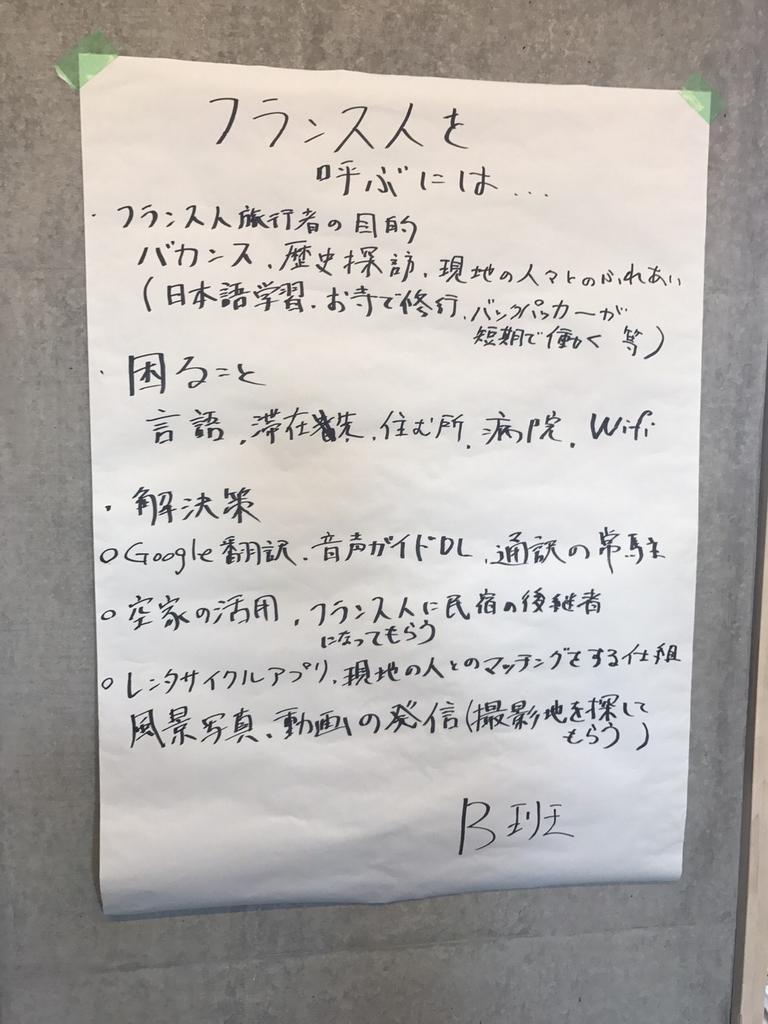 フランス人を
呼ぶには...
・フランス人旅行者の目的
バカンス、歴史探訪、現地の人々とのふれあい
(日本語学習、お寺で修行、バックパッカーが
短期で働く 等)
・困ること
言語、滞在先、住む所、病院、Wifi
・解決策
○Google翻訳、音声ガイドDL、通訳の常駐
○空家の活用、フランス人に民宿の後継者
になってもらう
○レンタサイクルアプリ、現地の人とのマッチングをする仕組
風景写真、動画の発信(撮影地を探して
もらう)
B班